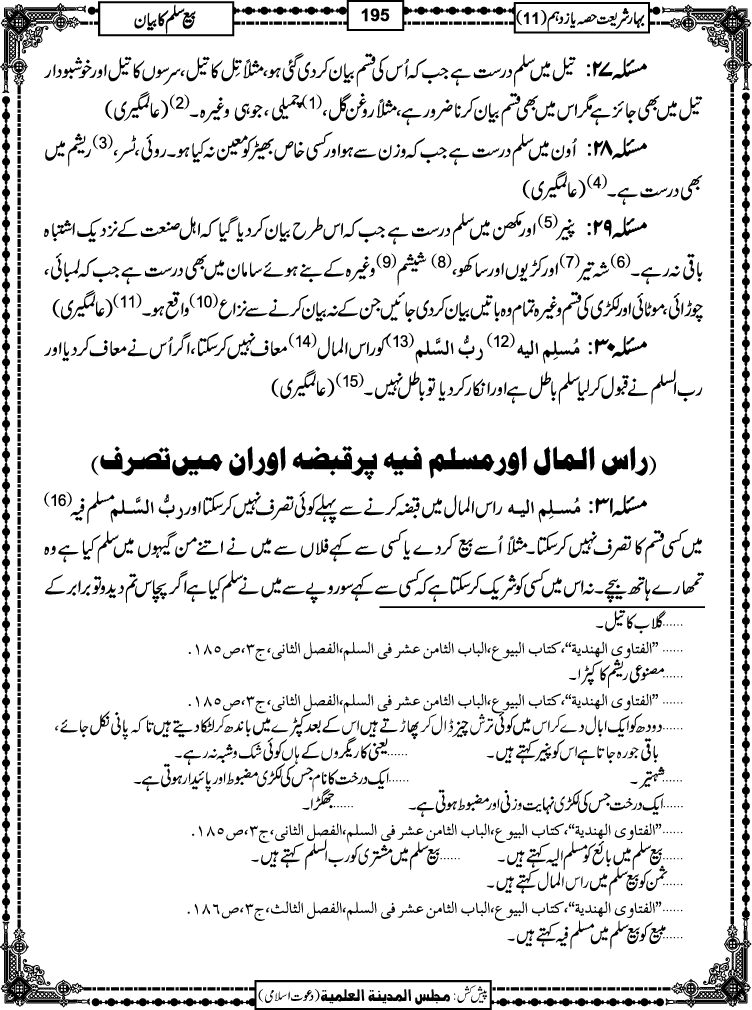 بہار شریعت حصہ یازدہم (11)
195
بیع سلم کا بیان
مسئلہ ۲۷: تیل میں سلم درست ہے جب کہ اُس کی قسم بیان کر دی گئی ہو، مثلاً تِل کا تیل، سرسوں کا تیل اور خوشبودار
تیل میں بھی جائز ہے مگر اس میں بھی قسم بیان کرنا ضرور ہے، مثلاً روغن گل، (1) چمیلی، جوہی وغیرہ۔(2) (عالمگیری)
مسئلہ ۲۸: اُون میں سلم درست ہے جب کہ وزن سے ہو اور کسی خاص بھیڑ کو معین نہ کیا ہو۔ روئی، ٹسر، (3) ریشم میں
بھی درست ہے۔(4) (عالمگیری)
مسئلہ ۲۹: پنیر (5) اور مکھن میں سلم درست ہے جب کہ اس طرح بیان کر دیا گیا کہ اہل صنعت کے نزدیک اشتباہ
باقی نہ رہے۔(6) شہ تیر (7) اور کڑیوں اور ساکھو، (8) شیشم (9) وغیرہ کے بنے ہوئے سامان میں بھی درست ہے جب کہ لمبائی،
چوڑائی، موٹائی اور لکڑی کی قسم وغیرہ تمام وہ باتیں بیان کر دی جائیں جن کے نہ بیان کرنے سے نزاع (10) واقع ہو۔(11) (عالمگیری)
مسئلہ ۳۰: مُسلِم الیہ (12) ربُّ السَّلم (13) کو راس المال (14) معاف نہیں کرسکتا، اگر اُس نے معاف کر دیا اور
رب السلم نے قبول کر لیا سلم باطل ہے اور انکار کر دیا تو باطل نہیں۔(15) (عالمگیری)
(راس المال اور مسلم فیہ پر قبضہ اور ان میں تصرف)
مسئلہ ۳۱: مُسلِم الیہ راس المال میں قبضہ کرنے سے پہلے کوئی تصرف نہیں کرسکتا اور ربُّ السَّلم مسلم فیہ (16)
میں کسی قسم کا تصرف نہیں کرسکتا۔ مثلاً اُسے بیع کر دے یا کسی سے کہے فلاں سے میں نے اتنے من گیہوں میں سلم کیا ہے وہ
تمھارے ہاتھ بیچے۔ نہ اس میں کسی کو شریک کرسکتا ہے کہ کسی سے کہے سو روپے سے میں نے سلم کیا ہے اگر پچاس تم دیدو تو برابر کے
......گلاب کا تیل۔
......”الفتاوی الھندیة“، کتاب البیوع، الباب الثامن عشر فی السلم، الفصل الثانی، ج۳، ص۱۸۵.
......مصنوعی ریشم کا کپڑا۔
......”الفتاوی الھندیة“، کتاب البیوع، الباب الثامن عشر فی السلم، الفصل الثانی، ج۳، ص۱۸۵.
......دودھ کو ایک ابال دے کر اس میں کوئی ترش چیز ڈال کر پھاڑتے ہیں اس کے بعد کپڑے میں باندھ کر لٹکا دیتے ہیں تاکہ پانی نکل جائے،
باقی جو رہ جاتا ہے اس کو پنیر کہتے ہیں۔ ......یعنی کاریگروں کے ہاں کوئی شک وشبہ نہ رہے۔
......شہتیر۔ ......ایک درخت کا نام جس کی لکڑی مضبوط اور پائیدار ہوتی ہے۔
......ایک درخت جس کی لکڑی نہایت وزنی اور مضبوط ہوتی ہے۔ ......جھگڑا۔
......”الفتاوی الھندیة“، کتاب البیوع، الباب الثامن عشر فی السلم، الفصل الثانی، ج۳، ص۱۸۵.
......بیع سلم میں بائع کو مسلم الیہ کہتے ہیں۔ ......بیع سلم میں مشتری کو رب السلم کہتے ہیں۔
......ثمن کو بیع سلم میں راس المال کہتے ہیں۔
......”الفتاوی الھندیة“، کتاب البیوع، الباب الثامن عشر فی السلم، الفصل الثالث، ج۳، ص۱۸۶.
......مبیع کو بیع سلم میں مسلم فیہ کہتے ہیں۔
پیش کش: مجلس المدینة العلمیة (دعوت اسلامی)